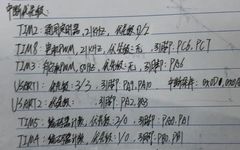 中断优先级:
TIM2: 通用定时器, 21KHz, 优先级: 0/2
TIM8: 电机PWM, 21KHz, 优先级: 无, 引脚: PC6, PC7
TIM3: PWM, 50Hz, 优先级: 无, 引脚: PA6
USART1: 优先级: 3/3, 引脚: PA9, PA10
USART2: 优先级: 引脚: PA2, PA3
TIM5: 编码器计数, 优先级: 2/0, 引脚: PA0, PA1
TIM4: 编码器计数, 优先级: 1/0, 引脚: PB6, PB7